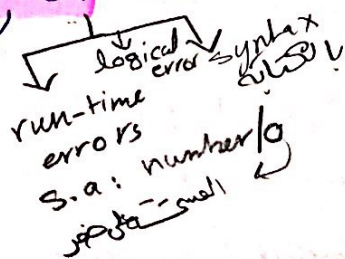 logical error
syntax
بالكتابة
run-time
errors
s.a: number/0
القسمة على صفر